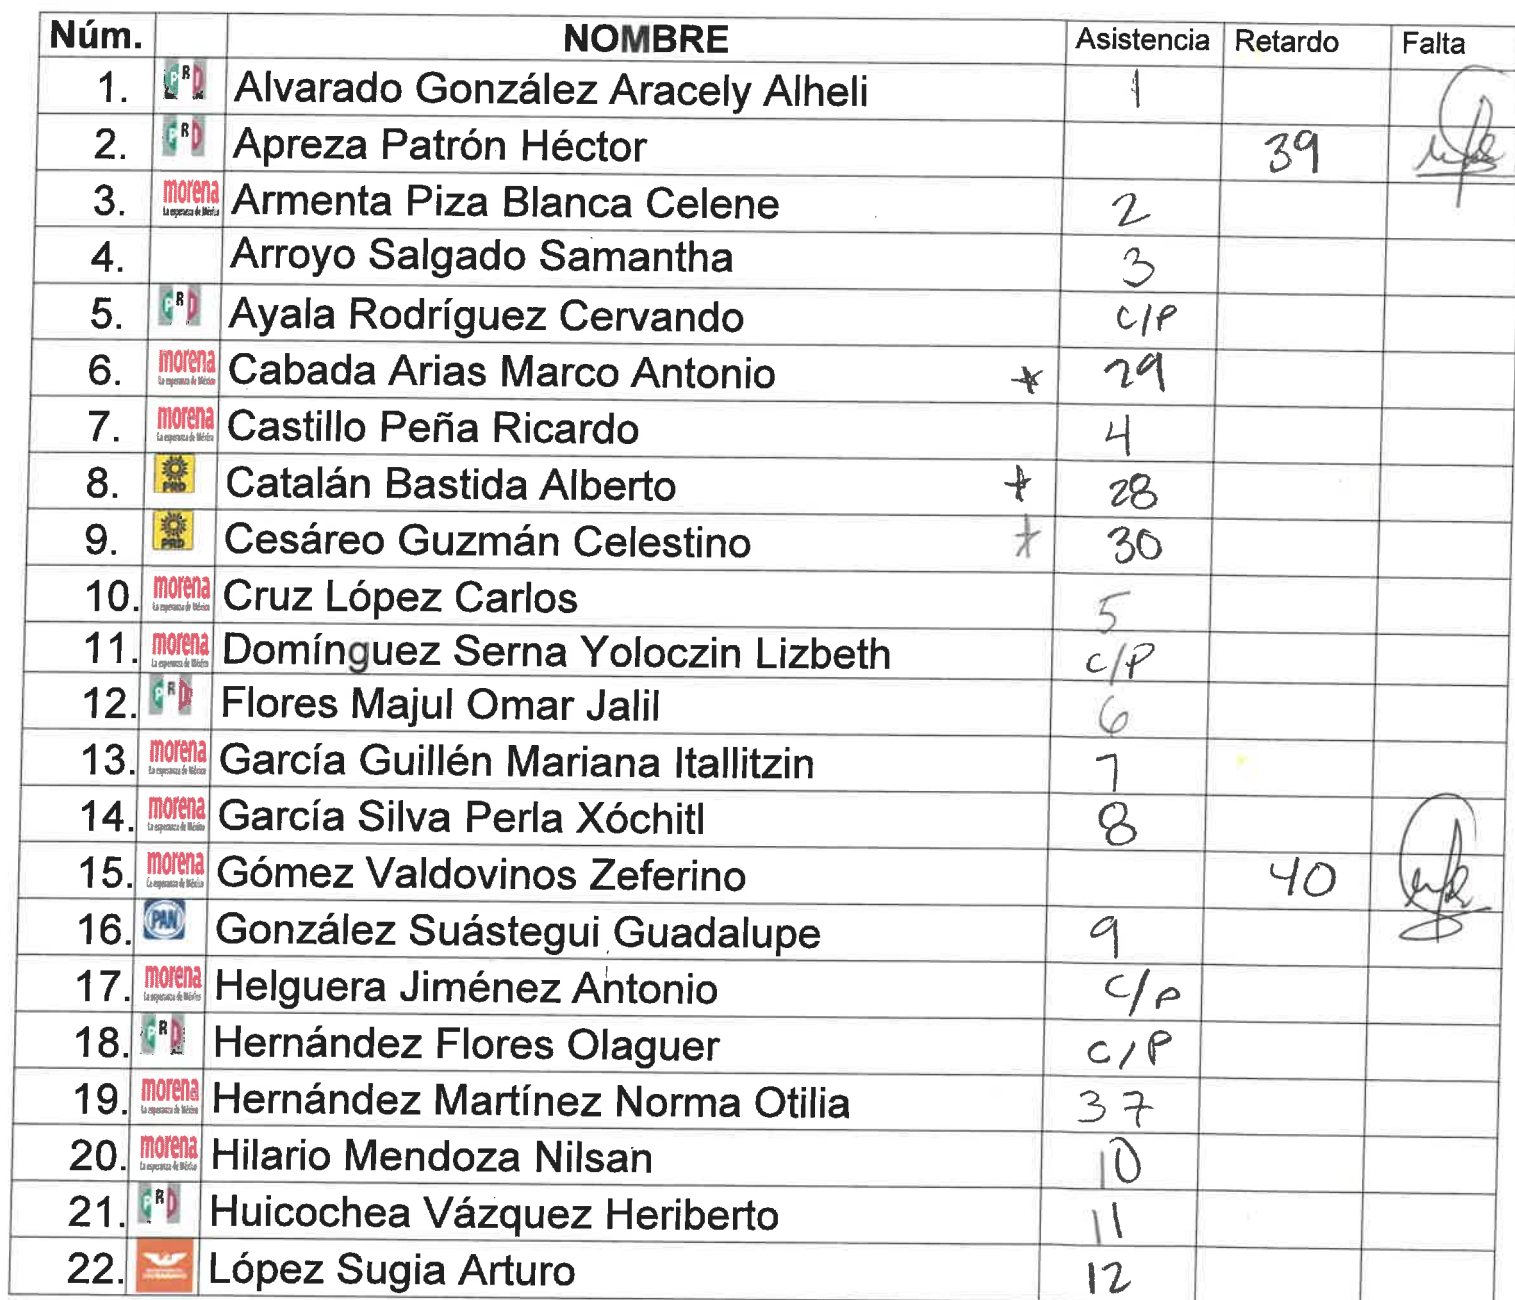 Núm. NOMBRE Asistencia Retardo Falta
1. PRI Alvarado González Aracely Alheli 1
2. PRI Apreza Patrón Héctor 39
3. morena La esperanza de México Armenta Piza Blanca Celene 2
4. Arroyo Salgado Samantha 3
5. PRI Ayala Rodríguez Cervando C/P
6. morena La esperanza de México Cabada Arias Marco Antonio * 29
7. morena La esperanza de México Castillo Peña Ricardo 4
8. PRD Catalán Bastida Alberto * 28
9. PRD Cesáreo Guzmán Celestino * 30
10. morena La esperanza de México Cruz López Carlos 5
11. morena La esperanza de México Domínguez Serna Yoloczin Lizbeth C/P
12. PRI Flores Majul Omar Jalil 6
13. morena La esperanza de México García Guillén Mariana Itallitzin 7
14. morena La esperanza de México García Silva Perla Xóchitl 8
15. morena La esperanza de México Gómez Valdovinos Zeferino 40
16. PAN González Suástegui Guadalupe 9
17. morena La esperanza de México Helguera Jiménez Antonio C/P
18. PRI Hernández Flores Olaguer C/P
19. morena La esperanza de México Hernández Martínez Norma Otilia 37
20. morena La esperanza de México Hilario Mendoza Nilsan 10
21. PRI Huicochea Vázquez Heriberto 11
22. López Sugia Arturo 12